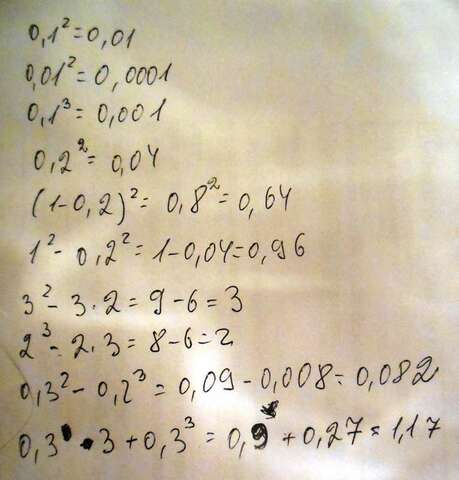 0,1² = 0,01
0,01² = 0,0001
0,1³ = 0,001
0,2² = 0,04
(1-0,2)² = 0,8² = 0,64
1² - 0,2² = 1-0,04=0,96
3² - 3·2 = 9-6 = 3
2³ - 2·3 = 8-6=2
0,3² - 0,2³ = 0,09 - 0,008 = 0,082
0,3 · 3 + 0,3³ = 0,9 + 0,27 = 1,17